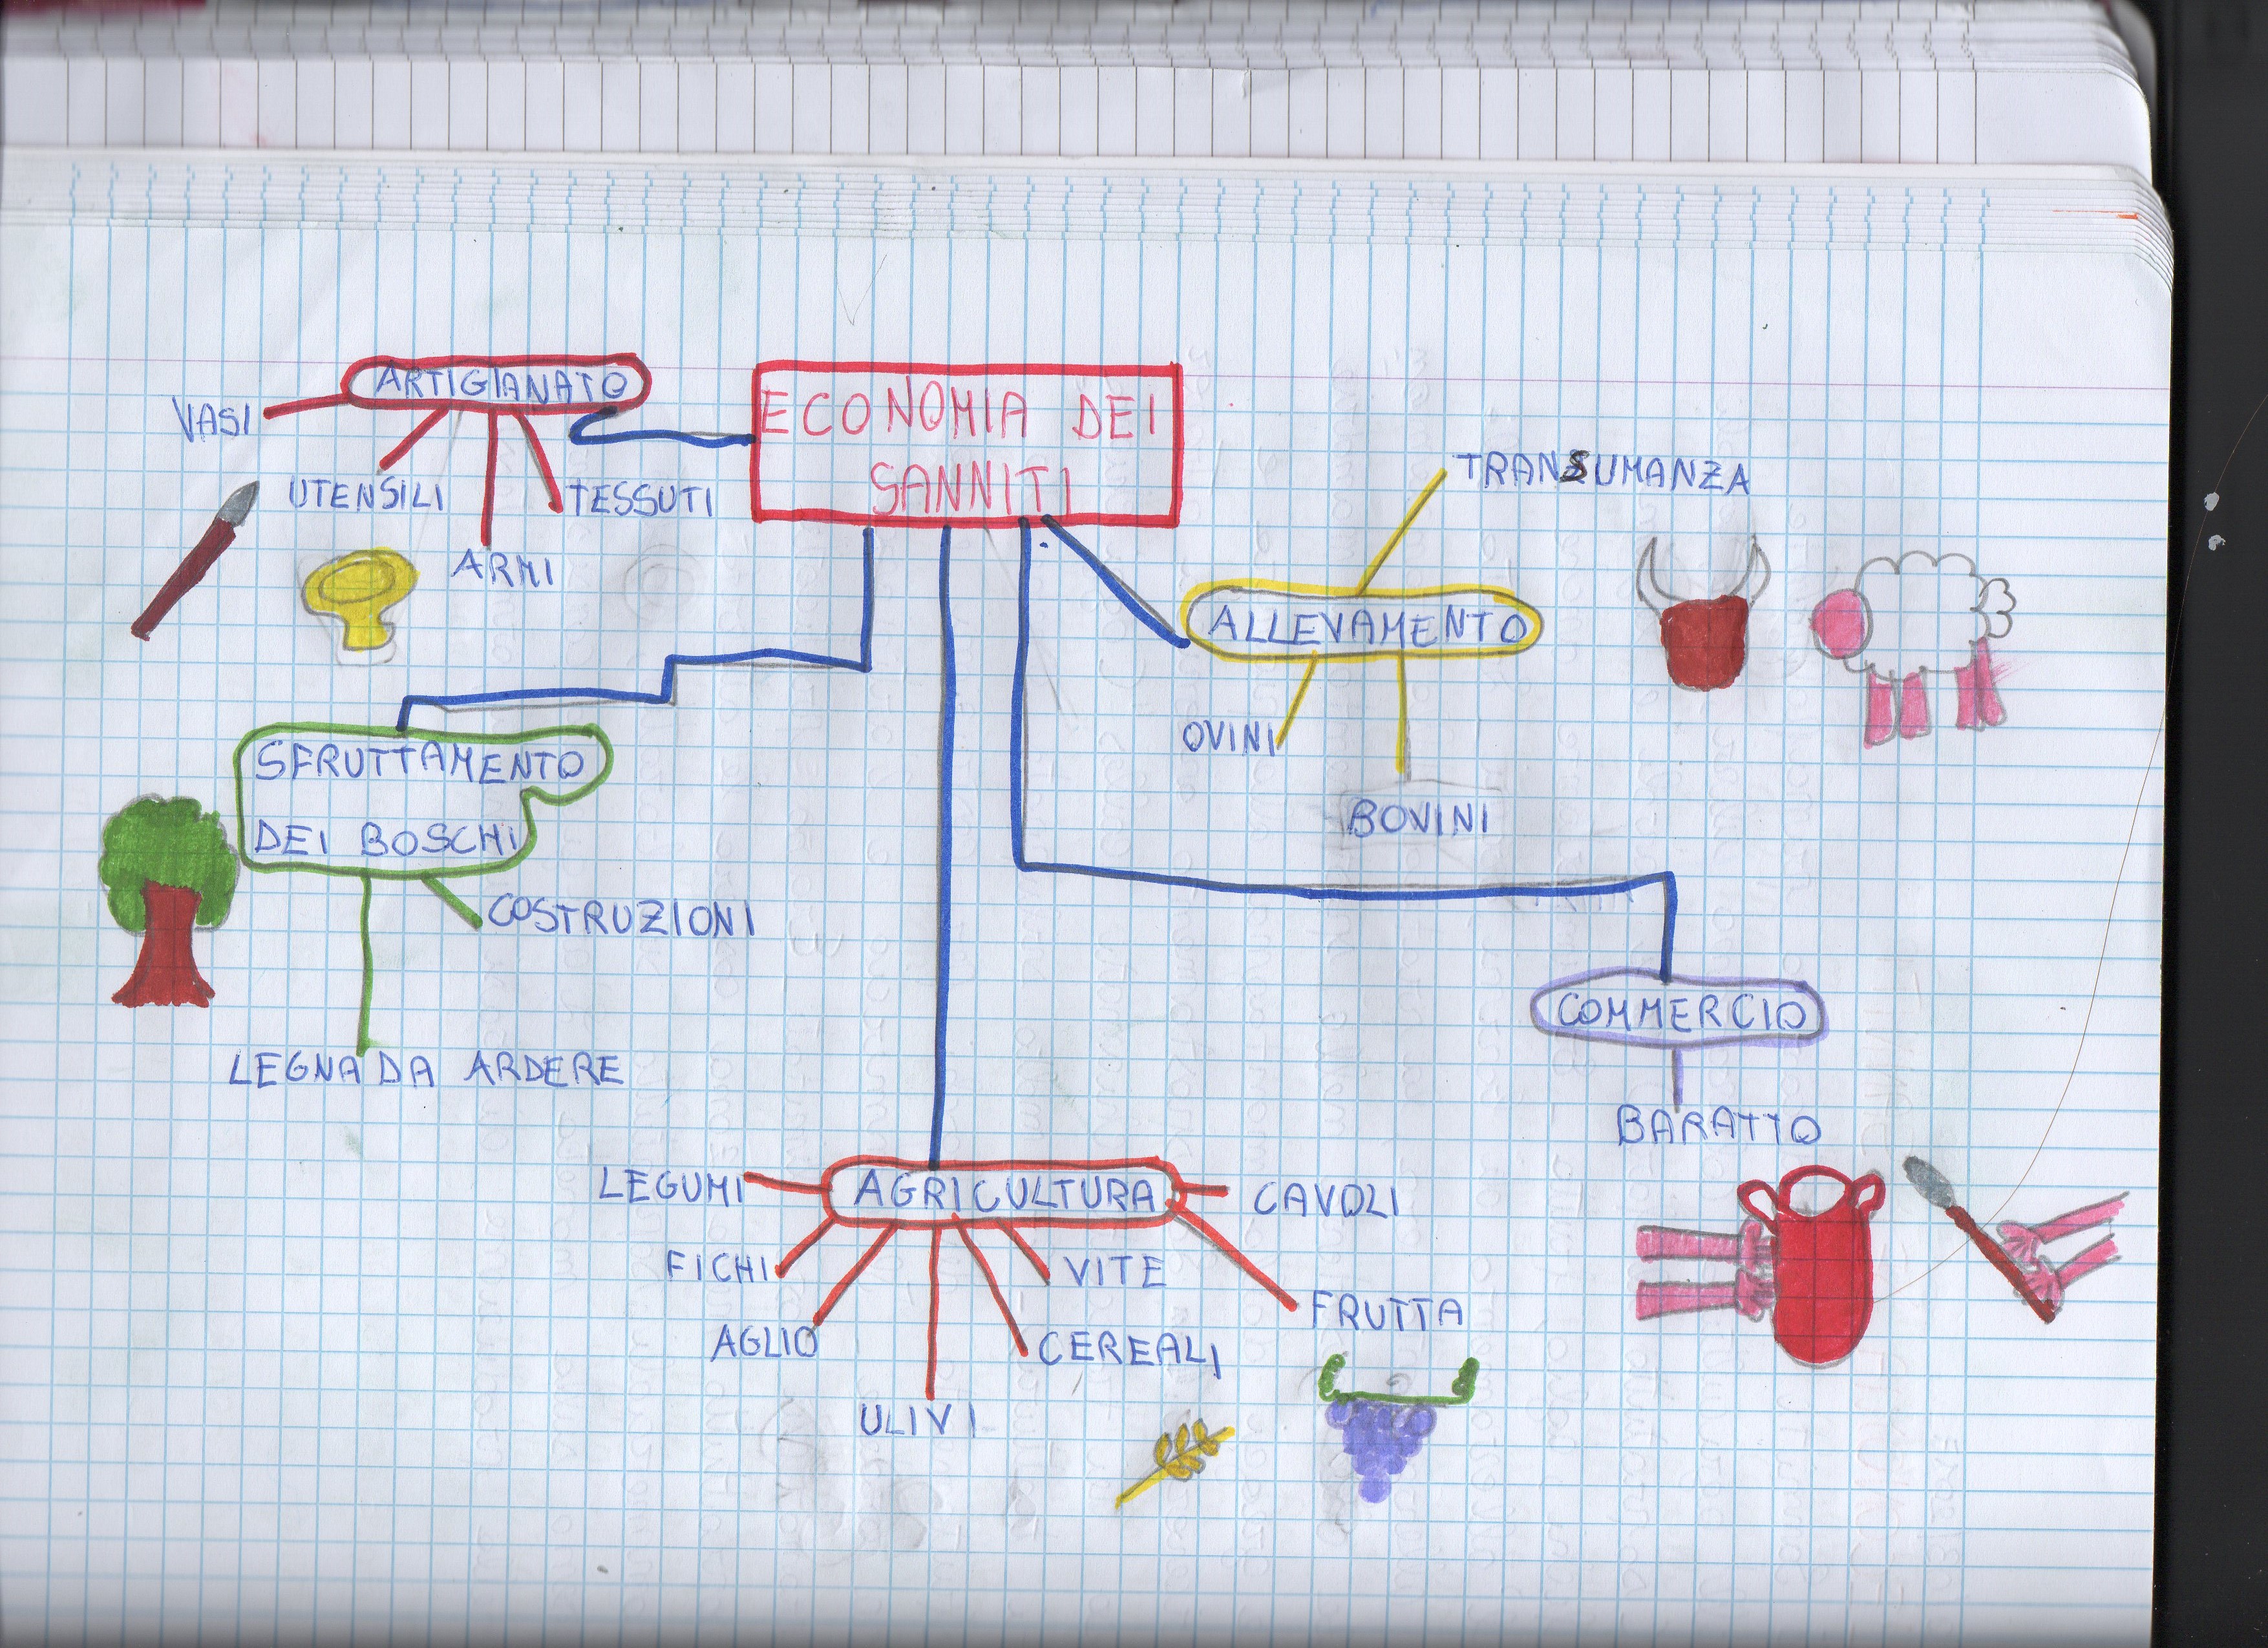 ECONOMIA DEI
SANNITI
ARTIGIANATO
VASI
UTENSILI
ARMI
TESSUTI
TRANSUMANZA
ALLEVAMENTO
OVINI
BOVINI
SFRUTTAMENTO
DEI BOSCHI
COSTRUZIONI
LEGNA DA ARDERE
COMMERCIO
BARATTO
AGRICULTURA
LEGUMI
FICHI
AGLIO
ULIVI
CEREALI
VITE
FRUTTA
CAVOLI